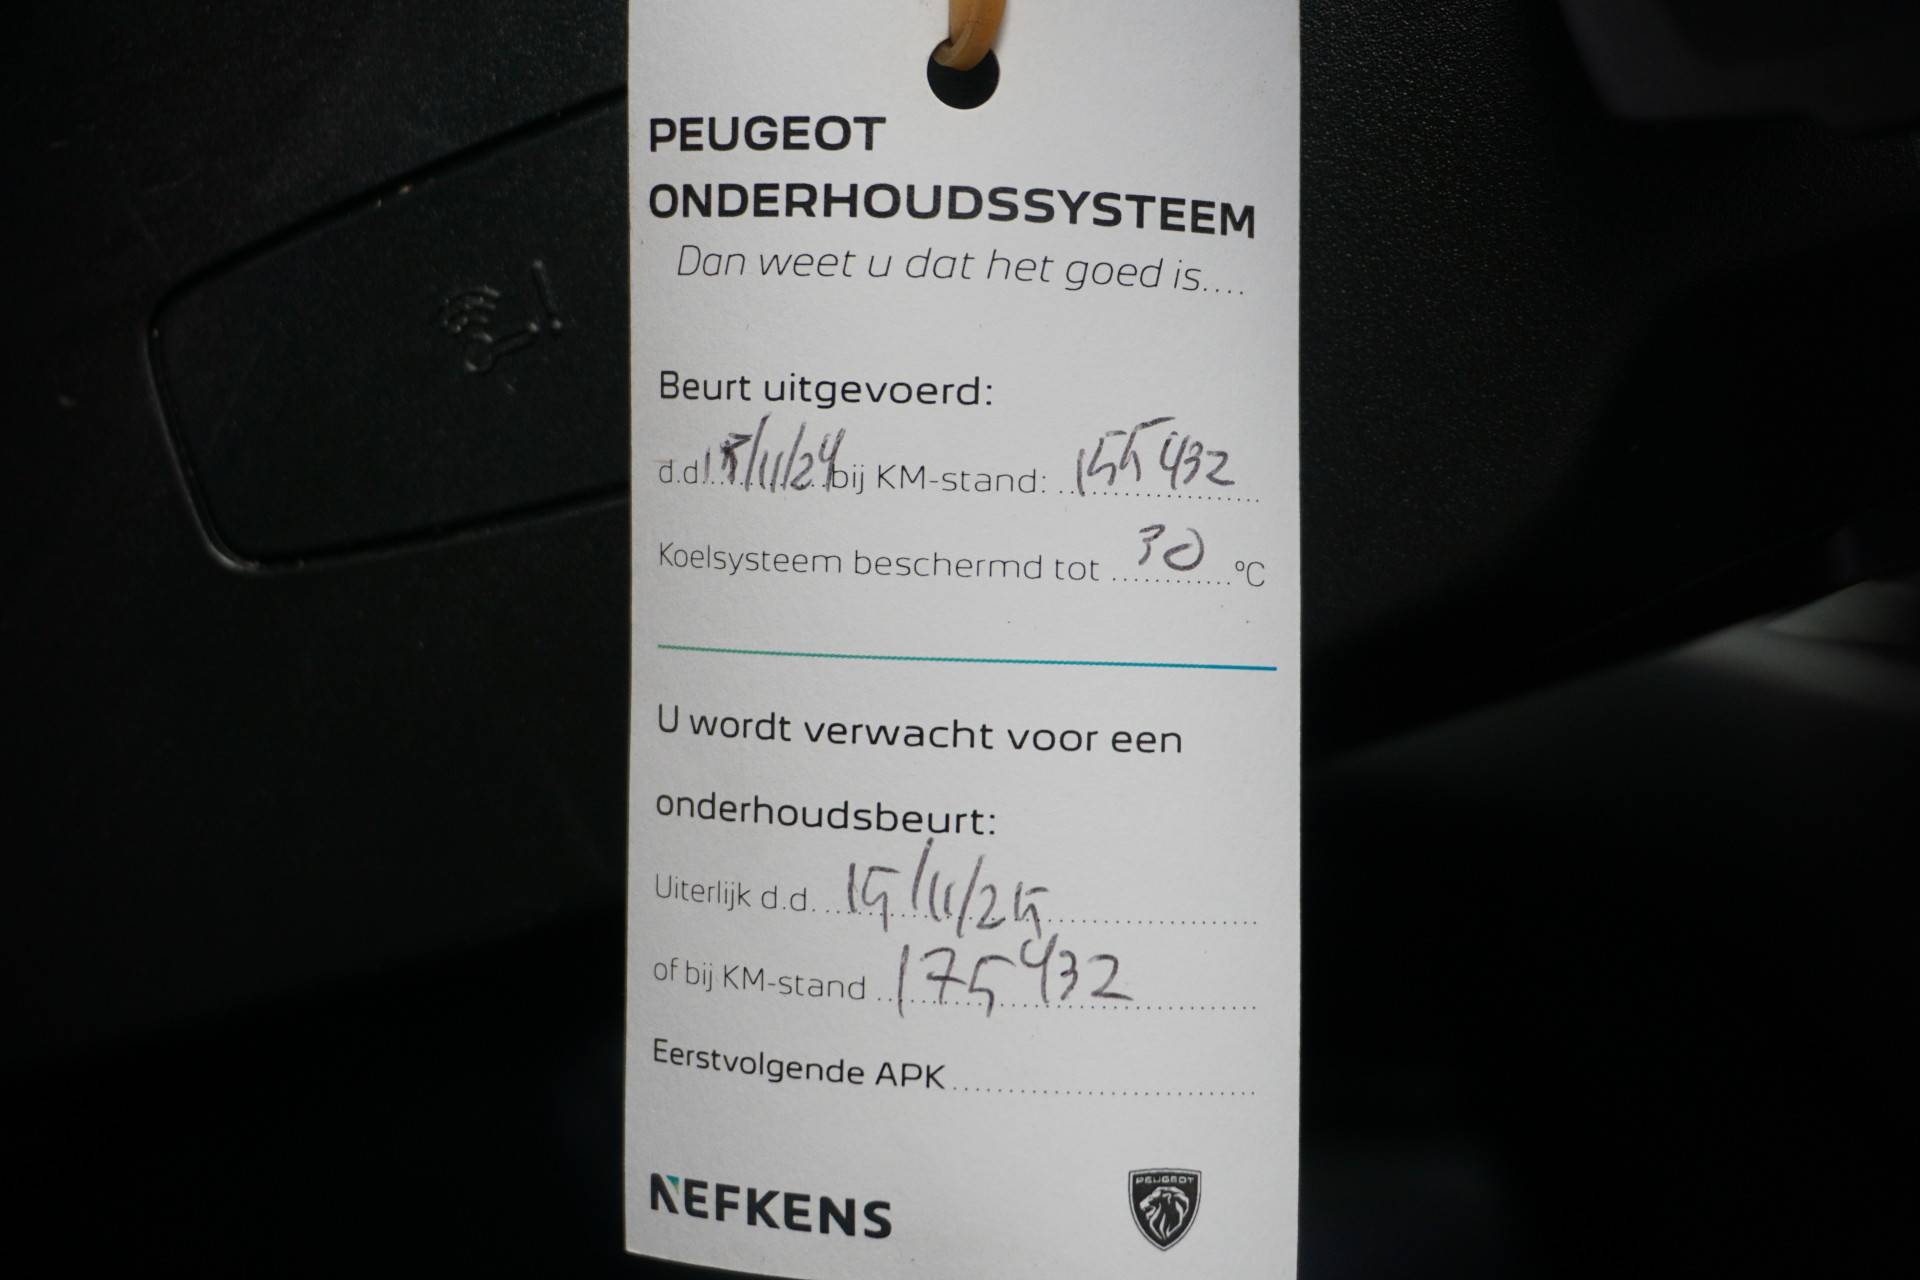 PEUGEOT
ONDERHOUDSSYSTEEM
Dan weet u dat het goed is....
Beurt uitgevoerd:
d.d. 15/11/24 bij KM-stand: 155432
Koelsysteem beschermd tot 30 °C
U wordt verwacht voor een
onderhoudsbeurt:
Uiterlijk d.d. 15/11/25
of bij KM-stand 175432
Eerstvolgende APK
NEFKENS
PEUGEOT